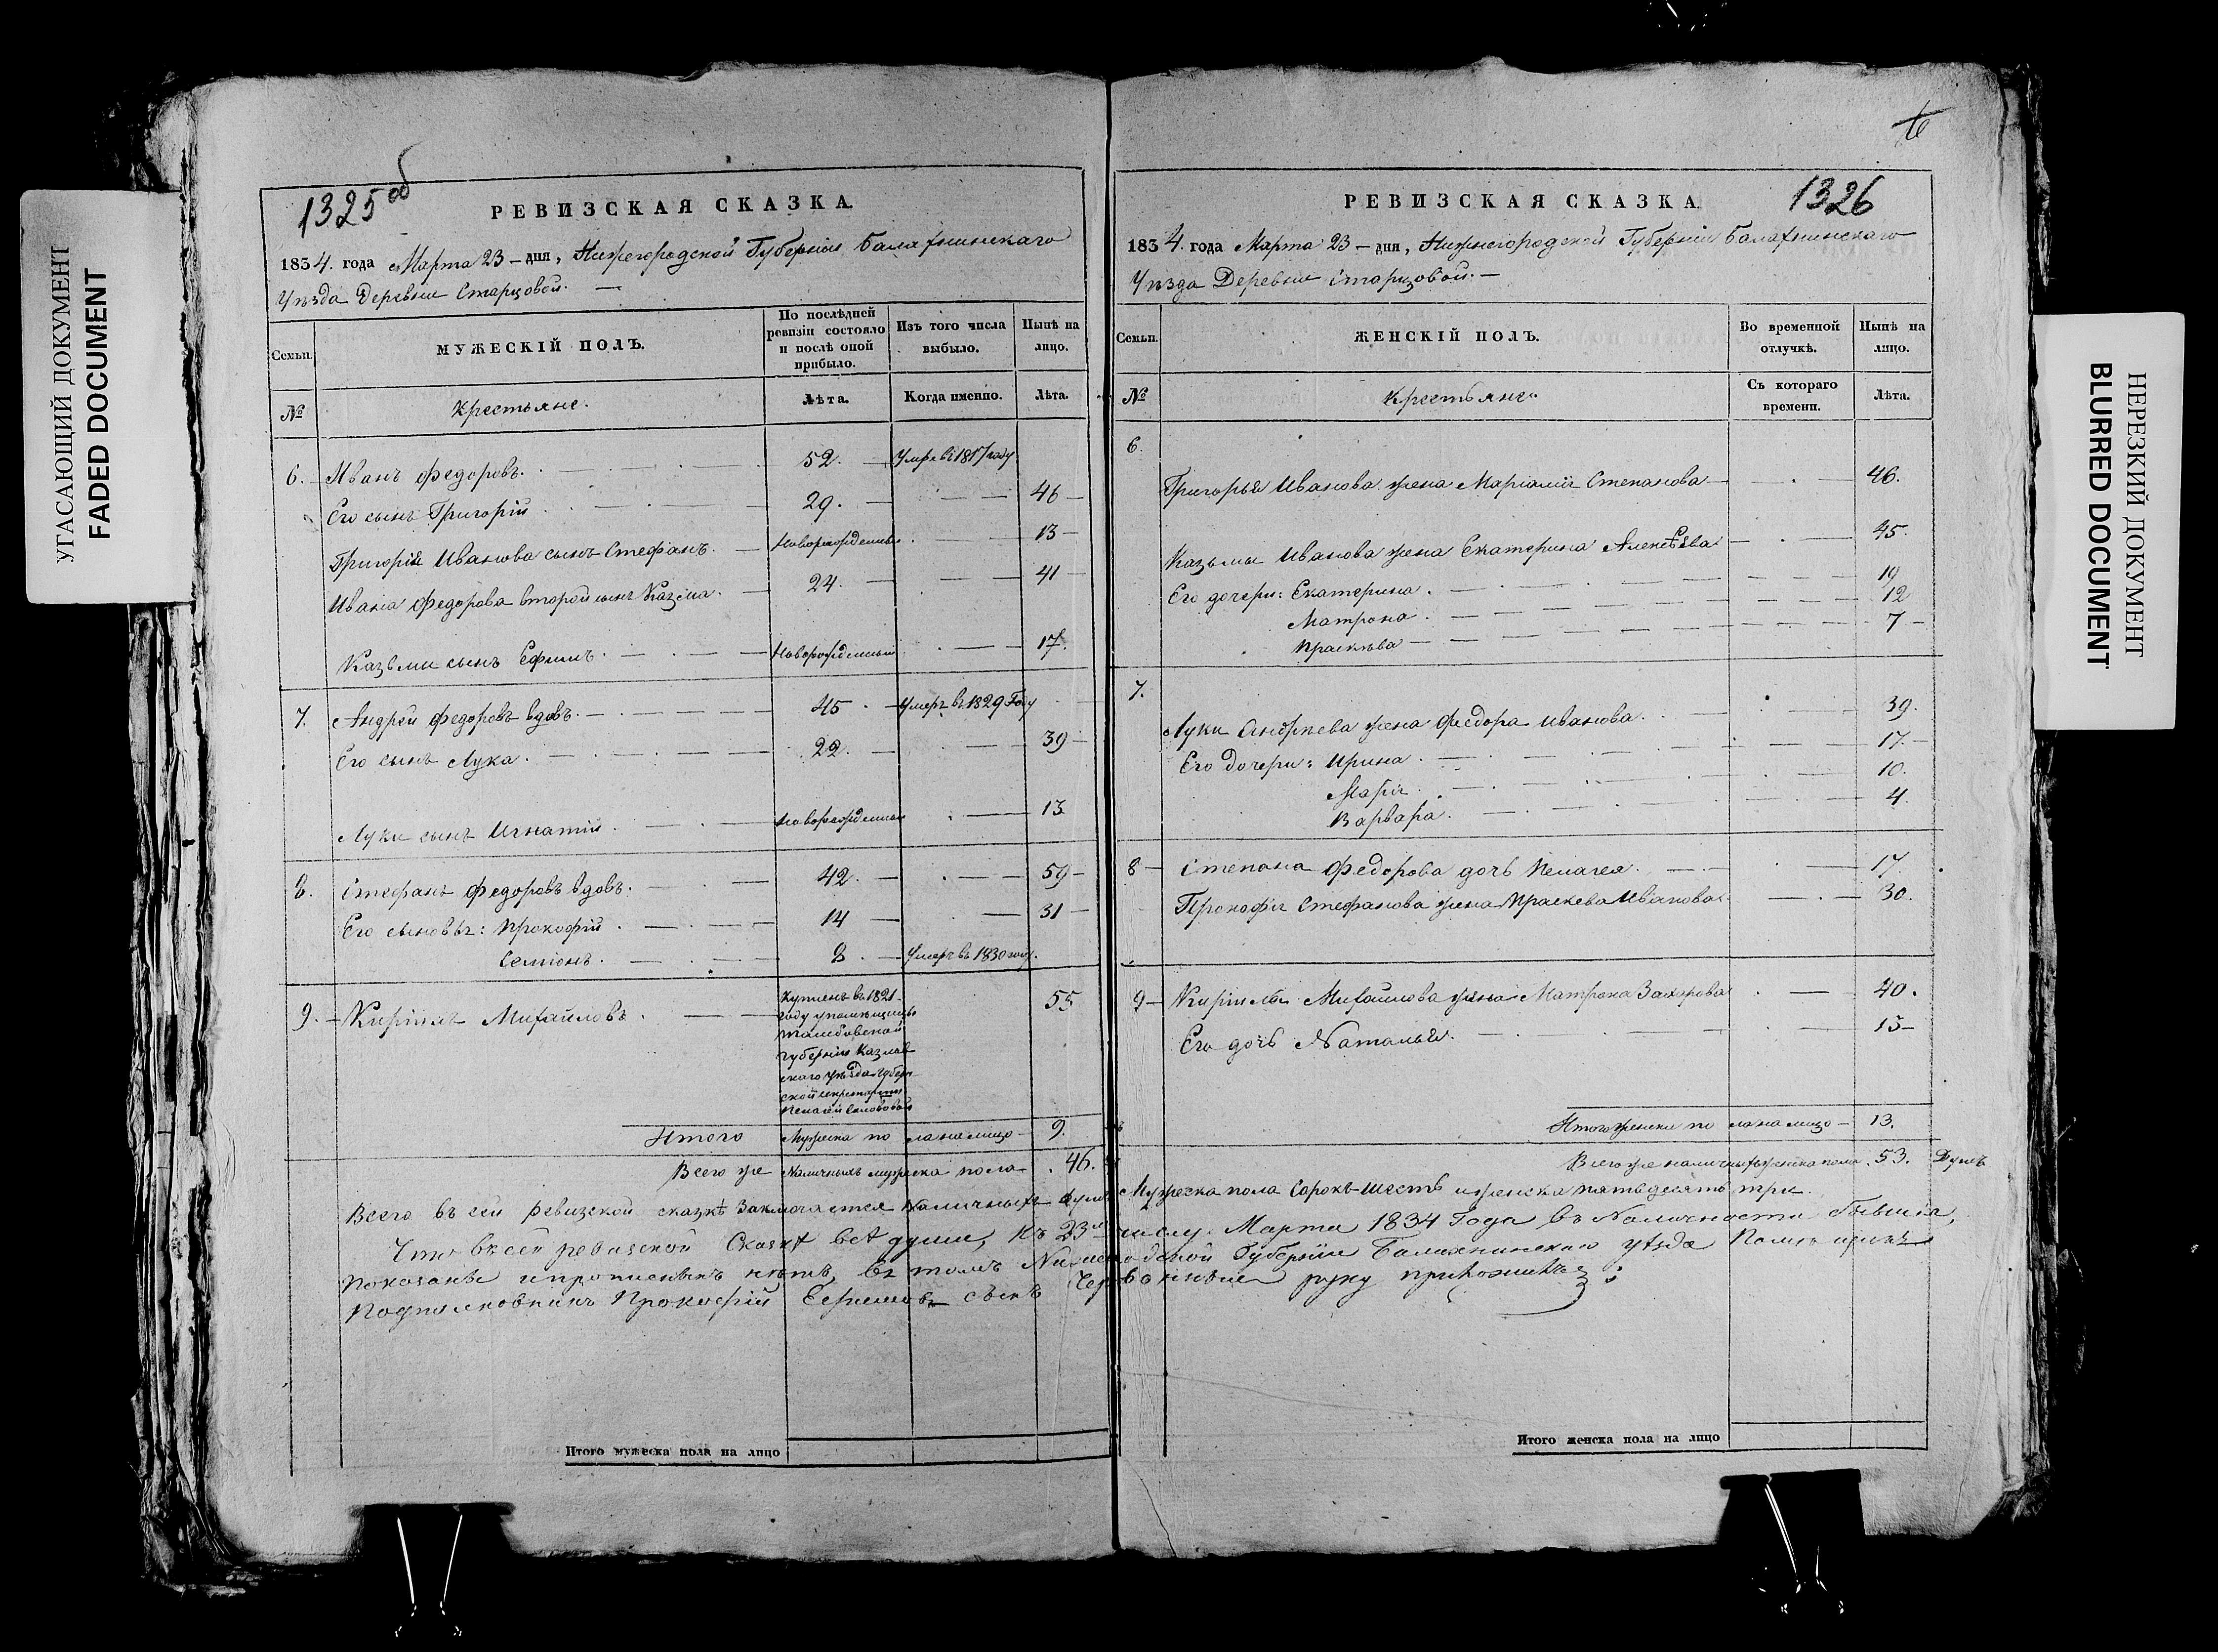 УГАСАЮЩИЙ ДОКУМЕНТ
FADED DOCUMENT
1325 об
РЕВИЗСКАЯ СКАЗКА.
1834. года Марта 23 – дня, Нижегородской Губерніи Балахнинскаго
Уѣзда Деревни Старцовой. —
Семьи.
МУЖЕСКІЙ ПОЛЪ.
По послѣдней ревизіи состояло и послѣ оной прибыло.
Изъ того числа выбыло.
Нынѣ на лицо.
№
Крестьяне.
Лѣта.
Когда именно.
Лѣта.
6. Иванъ Федоровъ. 52. Умре въ 1817 году
Его сынъ Григорій 29. 46
Григорія Иванова сынъ Стефанъ. Новорожденный 13
Ивана Федорова второй сынъ Казма. 24. 41
Казьмы сынъ Ефимъ. Новорожденный 17.
7. Андрей Федоровъ вдовъ. 45 Умеръ въ 1829 Году
Его сынъ Лука. 22. 39
Луки сынъ Игнатій. Новорожденный 13
8. Стефанъ Федоровъ вдовъ. 42. 59
Его сыновья: Прокофій. 14 31
Семіонъ. 8. Умеръ въ 1830 году.
9. Кирилъ Михайловъ. 55
Купленъ въ 1821
году у помѣщицы
Тамбовской
Губерніи Казлов
скаго уѣзда Губерн
ской секретарши
Пелагеи
Итого Мужска пола на лицо 9.
Всего же Наличныхъ мужеска пола 46.
Всего въ сей ревизской сказкѣ Заключается наличныхъ душъ
Что въ сей ревизской Сказкѣ всѣ души, къ 23му
Показаны и прописныхъ нѣтъ, въ томъ
Подполковникъ Прокофій сынъ
Итого мужеска пола на лицо
1326
РЕВИЗСКАЯ СКАЗКА.
1834. года Марта 23 – дня, Нижегородской Губерніи Балахнинскаго
Уѣзда Деревни Старцовой. —
Семьи.
ЖЕНСКІЙ ПОЛЪ.
Во временной отлучкѣ.
Нынѣ на лицо.
№
Крестьяне.
Съ котораго времени.
Лѣта.
6.
Григорья Иванова жена Маріамія Степанова 46.
Казьмы Иванова жена Екатерина Алексѣева 45.
Его дочери: Екатерина. 19
Матрона. 12
Прасковья 7
7.
Луки Андреева жена Федора Иванова. 39.
Его дочери: Ирина. 17.
Марія. 10.
Варвара. 4.
8 Степана Федорова дочь Пелагея. 17.
Прокофія Стефанова жена Праскева Иванова 30.
9 Кирила Михайлова жена Матрона Захарова 40.
Его дочь Наталья. 15
Итого женска пола на лицо 13.
Всего же наличныхъ женска пола 53. Душъ
Мужеска пола Сорокъ-шесть и женска пятьдесятъ три.
числу Марта 1834 Года въ Наличности бывшія,
Губерніи Балахнинскаго уѣзда
руку приложилъ
Итого женска пола на лицо
НЕРЕЗКИЙ ДОКУМЕНТ
BLURRED DOCUMENT